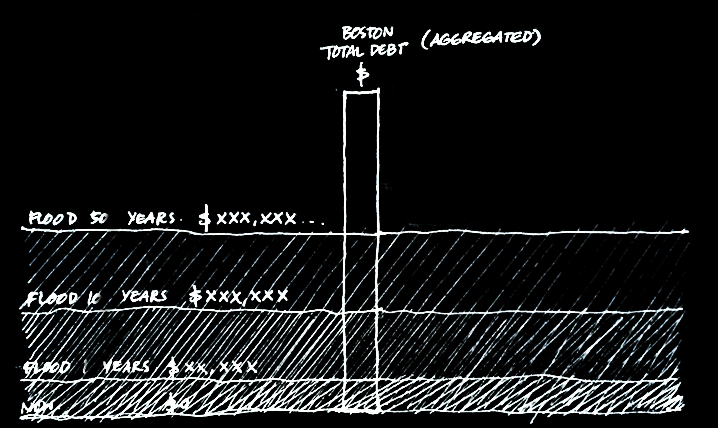 BOSTON
TOTAL DEBT (AGGREGATED)
$
FLOOD 50 YEARS. $ XXX,XXX...
FLOOD 10 YEARS $XXX,XXX
FLOOD 1 YEARS $XX,XXX
NOW $0